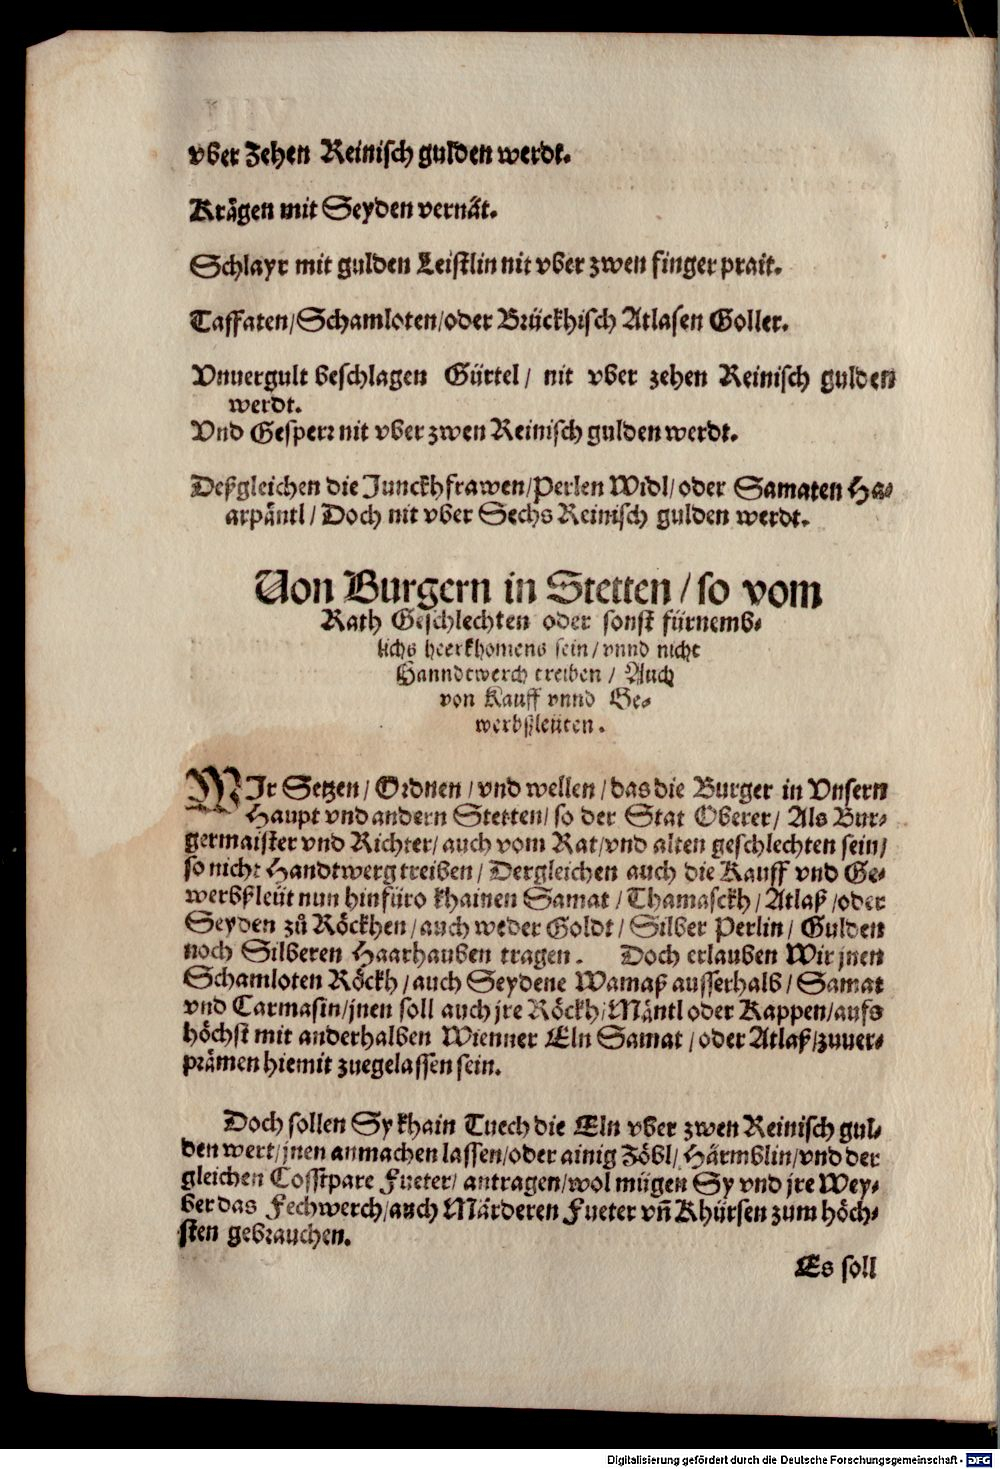 vber Zehen Reinisch gulden werdt.
Krägen mit Seyden vernät.
Schlayr mit gulden Leistlin nit vber zwen finger prait.
Taffaten/Schamloten/oder Brückhisch Atlasen Goller.
Vnuergult beschlagen Gürtel/ nit vber zehen Reinisch gulden
werdt.
Vnd Gesperr nit vber zwen Reinisch gulden werdt.
Deßgleichen die Junckhfrawen/Perlen Widl/oder Samaten Ha-
arpäntl/Doch nit vber Sechs Reinisch gulden werdt.
Von Burgern in Stetten/so vom
Rath Geschlechten oder sonst fürnemb-
lichs heerkhomens sein/vnnd nicht
Hanndtwerch treiben/ Auch
von Kauff vnnd Ge-
werbßleüten.
WIr Setzen/Ordnen/vnd wellen/das die Burger in Vnsern
Haupt vnd andern Stetten/so der Stat Oberer/Als Bur-
germaister vnd Richter/auch vom Rat/vnd alten geschlechten sein/
so nicht Handtwerg treiben/Dergleichen auch die Kauff vnd Ge-
werbßleüt nun hinfüro khainen Samat/Thamasckh/Atlaß/oder
Seyden zů Röckhen/auch weder Goldt/Silber Perlin/Gulden
noch Silberen Haarhauben tragen. Doch erlauben Wir jnen
Schamloten Röckh/auch Seydene Wamaß ausserhalb/Samat
vnd Carmasin/jnen soll auch jre Röckh/Mäntl oder Kappen/aufs
höchst mit anderhalben Wienner Eln Samat/oder Atlaß/zuuer-
prämen hiemit zuegelassen sein.
Doch sollen Sy khain Tuech die Eln vber zwen Reinisch gul-
den wert/jnen anmachen lassen/oder ainig Zöbl/Härmblin/vnd der
gleichen Cosstpare Fueter/antragen/wol mügen Sy vnd jre Wey-
ber das Fechwerch/auch Märderen Fueter vn̄ Khürsen zum höch-
sten gebrauchen.
Es soll
Digitalisierung gefördert durch die Deutsche Forschungsgemeinschaft - DFG